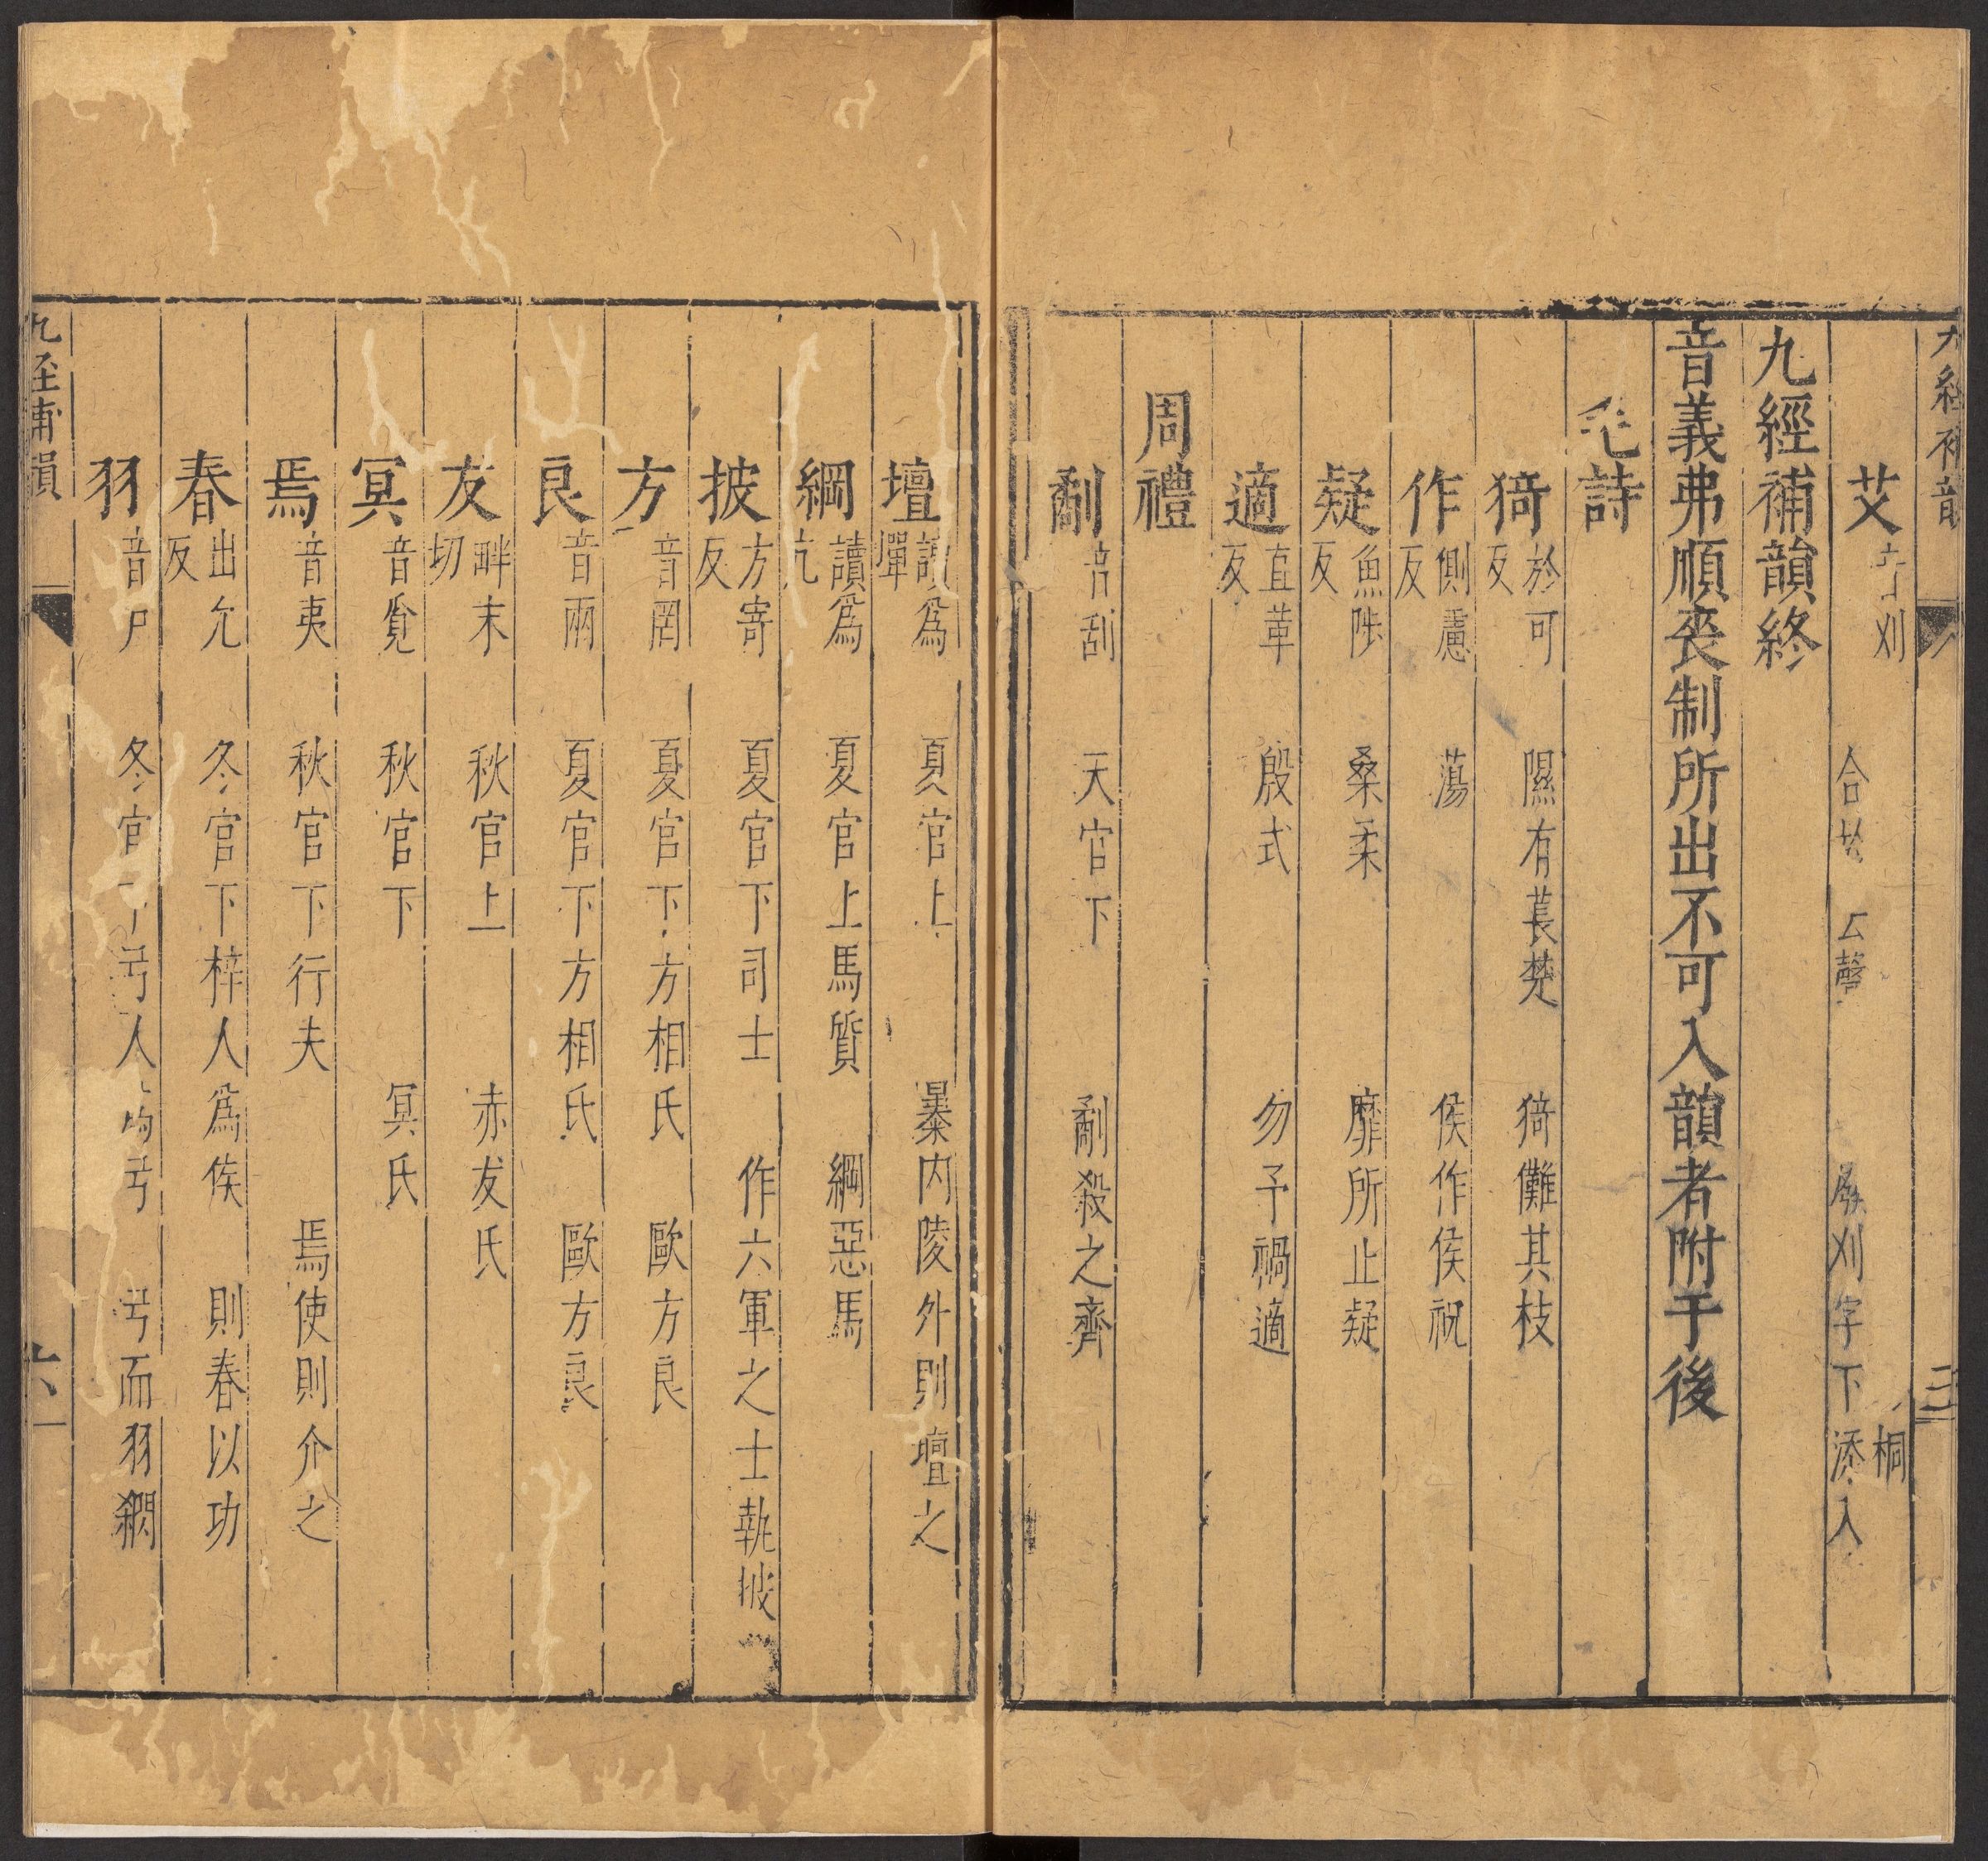 九經補韻
艾 音刈 合於 厶聲 於刈字下添入 桐
九經補韻終
音義弗順喪制所出不可入韻者附于後
毛詩
猗 於可反 隰有萇楚 猗儺其枝
作 側慮反 蕩 侯作侯祝
疑 魚陟反 桑柔 靡所止疑
適 直革反 殷武 勿予禍適
周禮
劀 音刮 天官下 劀殺之齊
壇 讀爲墠 夏官上 暴内陵外則壇之
綱 讀爲亢 夏官上馬質 綱惡馬
披 方寄反 夏官下司士 作六軍之士執披
方 音罔 夏官下方相氏 歐方良
良 音兩 夏官下方相氏 歐方良
犮 畔末切 秋官上 赤犮氏
冥 音覓 秋官下 冥氏
焉 音夷 秋官下行夫 焉使則介之
春 出允反 冬官下梓人爲侯 則春以功
羽 音戸 冬官下弓人 弓而羽閷
九經補韻
六